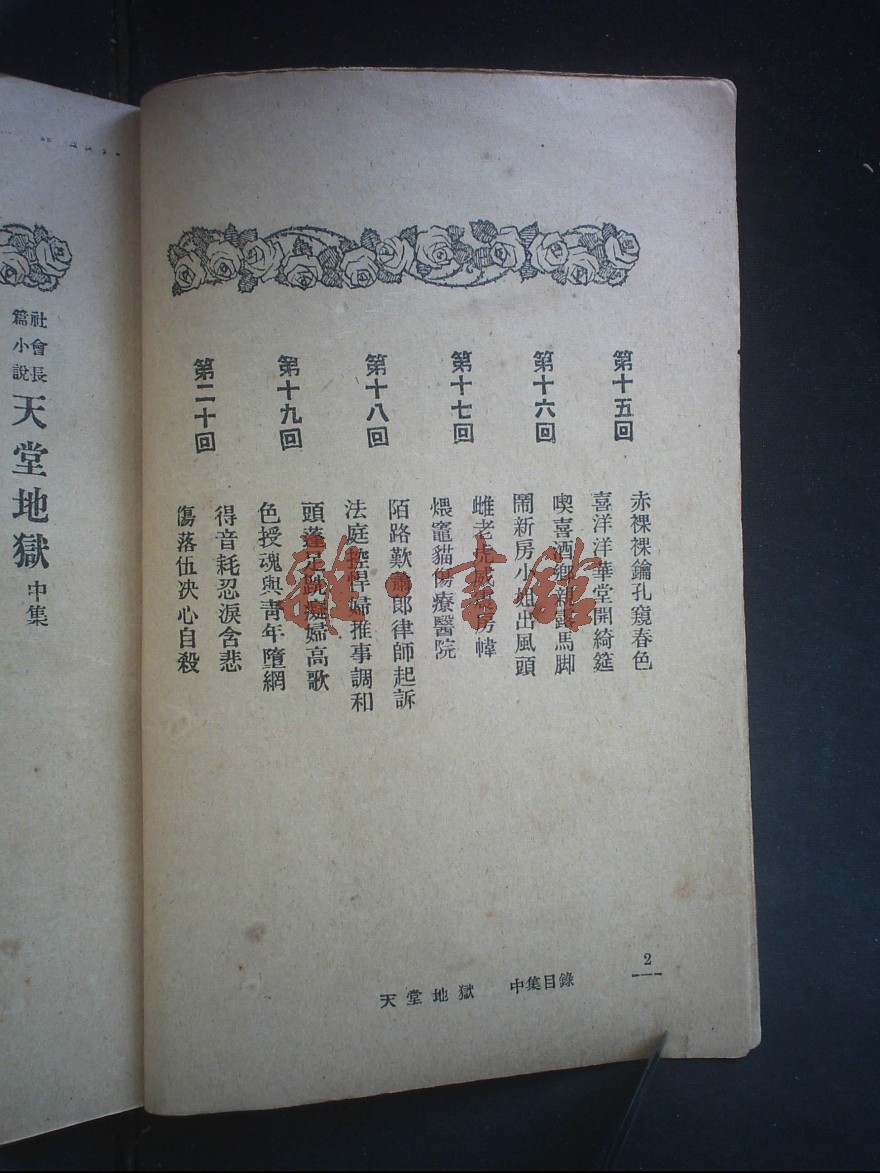 第十五回
赤裸裸鑰孔窺春色
喜洋洋華堂開綺筵
第十六回
喫喜酒鄉親露馬脚
鬧新房小姐出風頭
第十七回
雌老虎威
房幃
煨竈貓傷療醫院
第十八回
陌路歎蕭郎律師起訴
法庭控悍婦推事調和
第十九回
頭蓬足跣癡婦高歌
色授魂與靑年墮網
第二十回
得音耗忍淚含悲
傷落伍决心自殺
天堂地獄 中集目錄
2
社會長篇小說
天堂地獄 中集
雜·書館